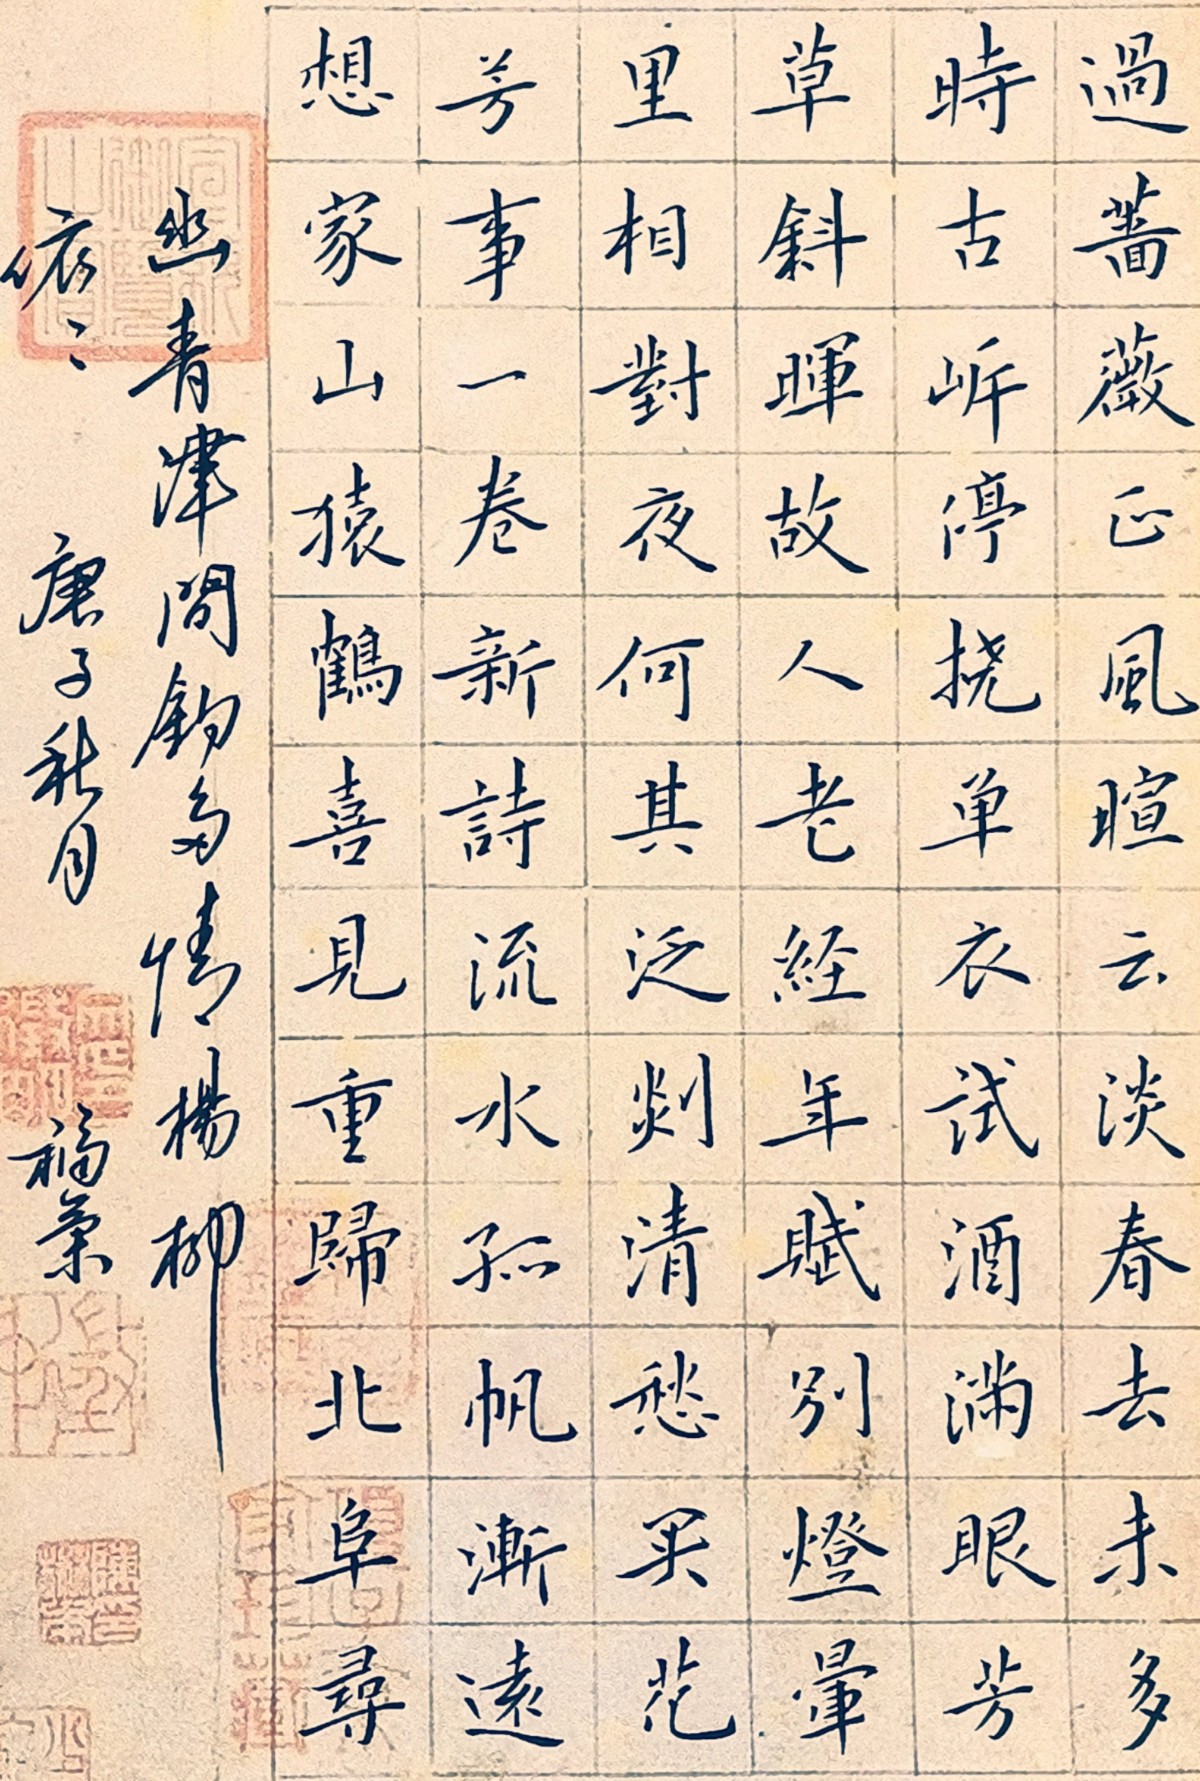 過薔薇正風暄云淡春去未多
時古岸停撓单衣試酒滿眼芳
草斜暉故人老経年賦別燈暈
里相對夜何其泛剡清愁买花
芳事一卷新詩流水孤帆漸遠
想家山猿鶴喜見重歸北阜尋
幽青津間釣多情楊柳
依々 庚子秋月 福荣